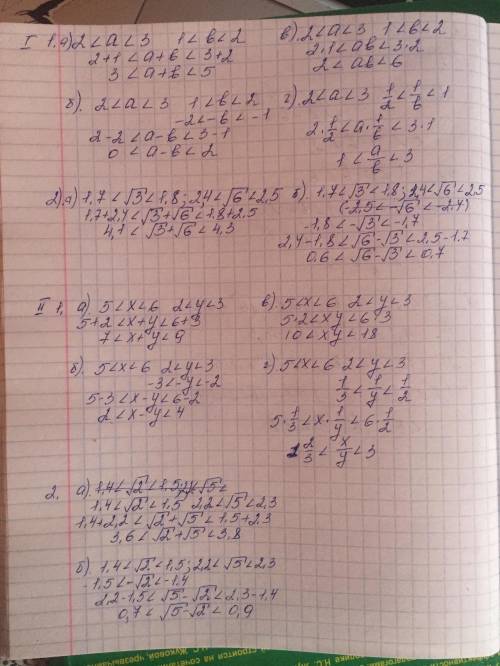 I 1. а) 2 < a < 3 1 < b < 2
2+1 < a+b < 3+2
3 < a+b < 5
в). 2 < a < 3 1 < b < 2
2·1 < ab < 3·2
2 < ab < 6
б). 2 < a < 3 1 < b < 2
-2 < -b < -1
2-2 < a-b < 3-1
0 < a-b < 2
г). 2 < a < 3 1/2 < 1/b < 1
2·1/2 < a·1/b < 3·1
1 < a/b < 3
2) а) 1,7 < √3 < 1,8; 2,4 < √6 < 2,5
1,7+2,4 < √3+√6 < 1,8+2,5
4,1 < √3+√6 < 4,3
б) 1,7 < √3 < 1,8; 2,4 < √6 < 2,5
(-2,5 < -√6 < -2,4)
-1,8 < -√3 < -1,7
2,4-1,8 < √6-√3 < 2,5-1,7
0,6 < √6-√3 < 0,7
II 1, а) 5 < x < 6 2 < y < 3
5+2 < x+y < 6+3
7 < x+y < 9
в). 5 < x < 6 2 < y < 3
5·2 < xy < 6·3
10 < xy < 18
б). 5 < x < 6 2 < y < 3
-3 < -y < -2
5-3 < x-y < 6-2
2 < x-y < 4
г). 5 < x < 6 2 < y < 3
1/3 < 1/y < 1/2
5·1/3 < x·1/y < 6·1/2
1 2/3 < x/y < 3
2. а). 1,4 < √2 < 1,5; √5 <
1,4 < √2 < 1,5 2,2 < √5 < 2,3
1,4+2,2 < √2+√5 < 1,5+2,3
3,6 < √2+√5 < 3,8
б). 1,4 < √2 < 1,5; 2,2 < √5 < 2,3
-1,5 < -√2 < -1,4
2,2-1,5 < √5-√2 < 2,3-1,4
0,7 < √5-√2 < 0,9